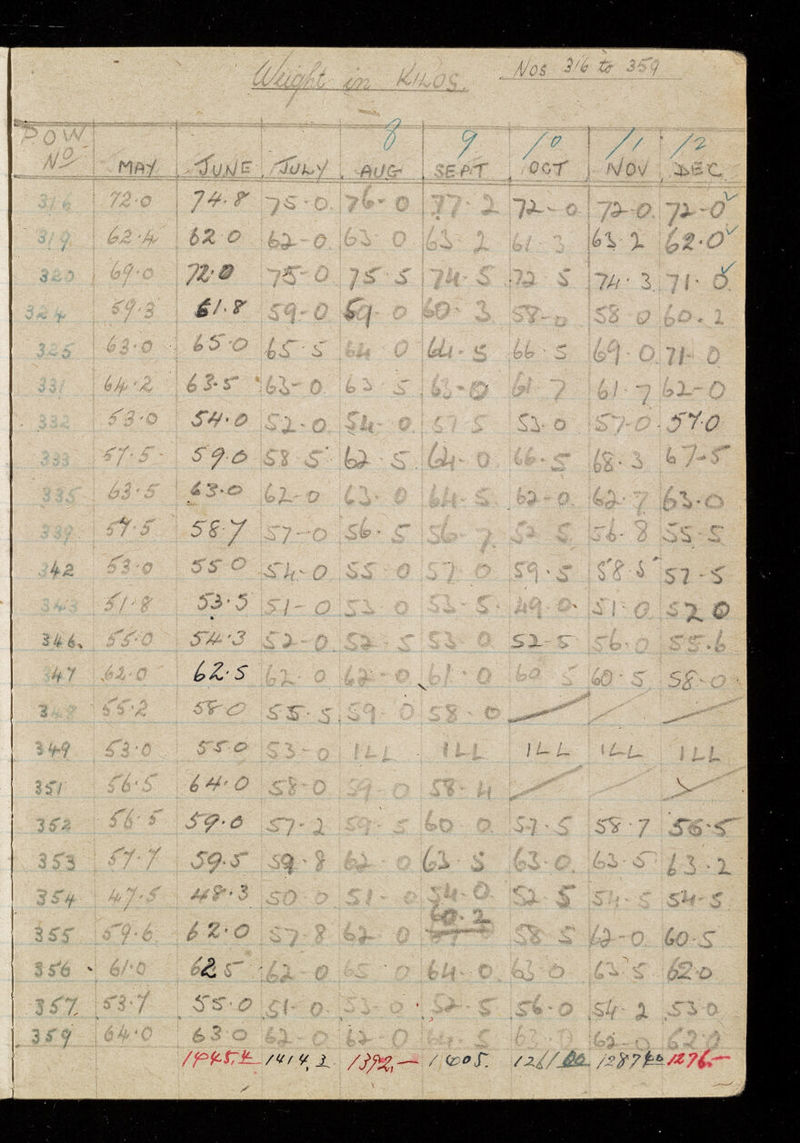 Weight in KILOS. Nos 316 to 359
8 9 10 11 12
POW
No MAY JUNE JULY AUG SEPT OCT NOV DEC
316 72.0 74.8 75.0 76-0 77.2 72-0 72-0 72-0
319 62.4 62 0 62-0 63 0 63 2 61.3 63 2 62.0
320 69.0 72.0 75-0 75.5 74.5 72 5 74.3 71.0
324 59.3 61.8 59-0 59-0 60.3 58-0 58 0 60.2
325 63.0 65.0 65.5 64 0 64.5 66.5 69.0 71-0
331 64.2 63.5 63-0 63 5 63-0 61 7 61.7 62-0
332 53.0 54.0 52-0 54-0 57 5 53.0 57-0 57.0
333 57.5 59.0 58 5 62.5 64-0 66.5 68.3 67-5
335 63.5 63.0 62-0 63.0 64.5 62-0 62.7 63.0
339 57.5 58.7 57-0 56.5 56.7 52 5 56.8 55.5
342 53.0 55 0 54-0 55 0 57 0 59.5 58 5 57-5
343 51.8 53.5 51-0 53 0 53-5 49.0 51.0 52 0
346 55.0 54.3 52-0 52-5 53 0 52-5 56.0 55.6
347 62.0 62.5 62.0 62-0 61.0 60 5 60.5 58-0
348 55.2 58-0 55.5 59-0 58-0
349 53.0 55.0 53-0 ILL ILL ILL ILL ILL
351 56.5 64.0 58-0 59-0 58-4
352 56 5 59.0 57-2 59-5 60 0 57.5 58.7 56.5
353 57.7 59.5 59.8 62-0 63 5 63-0 63.5 63.2
354 47.5 48.3 50 0 51-0 54-0 52 5 54-5 54-5
60.2
355 59.6 62.0 57-8 62 0 58 5 62-0 60-5
356 61.0 62 5 62-0 65 0 64-0 63 0 63.5 62.0
357 53.7 55.0 51-0 53-0 52-5 56-0 54 2 53 0
359 64.0 63 0 62-0 62-0 64.5 63.0 62-0 62.0
1414,2 1392,— 1276.—